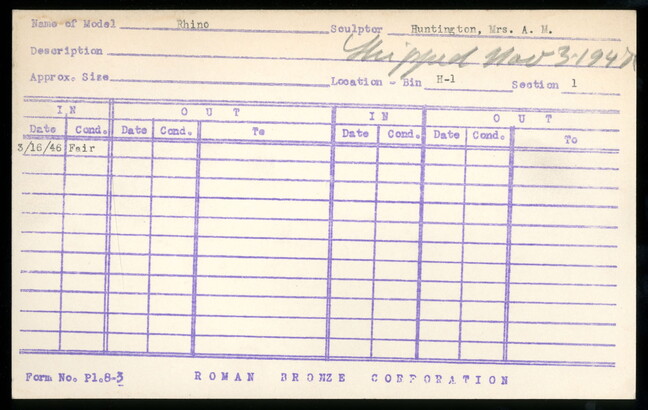 Name of Model Rhino Sculptor Huntington, Mrs. A. M.
Description Shipped Nov 3-1947
Approx. Size Location - Bin H-1 Section 1
IN OUT IN OUT
Date Cond. Date Cond. To Date Cond. Date Cond. To
3/16/46 Fair
Form No. Pl.8-3 ROMAN BRONZE CORPORATION